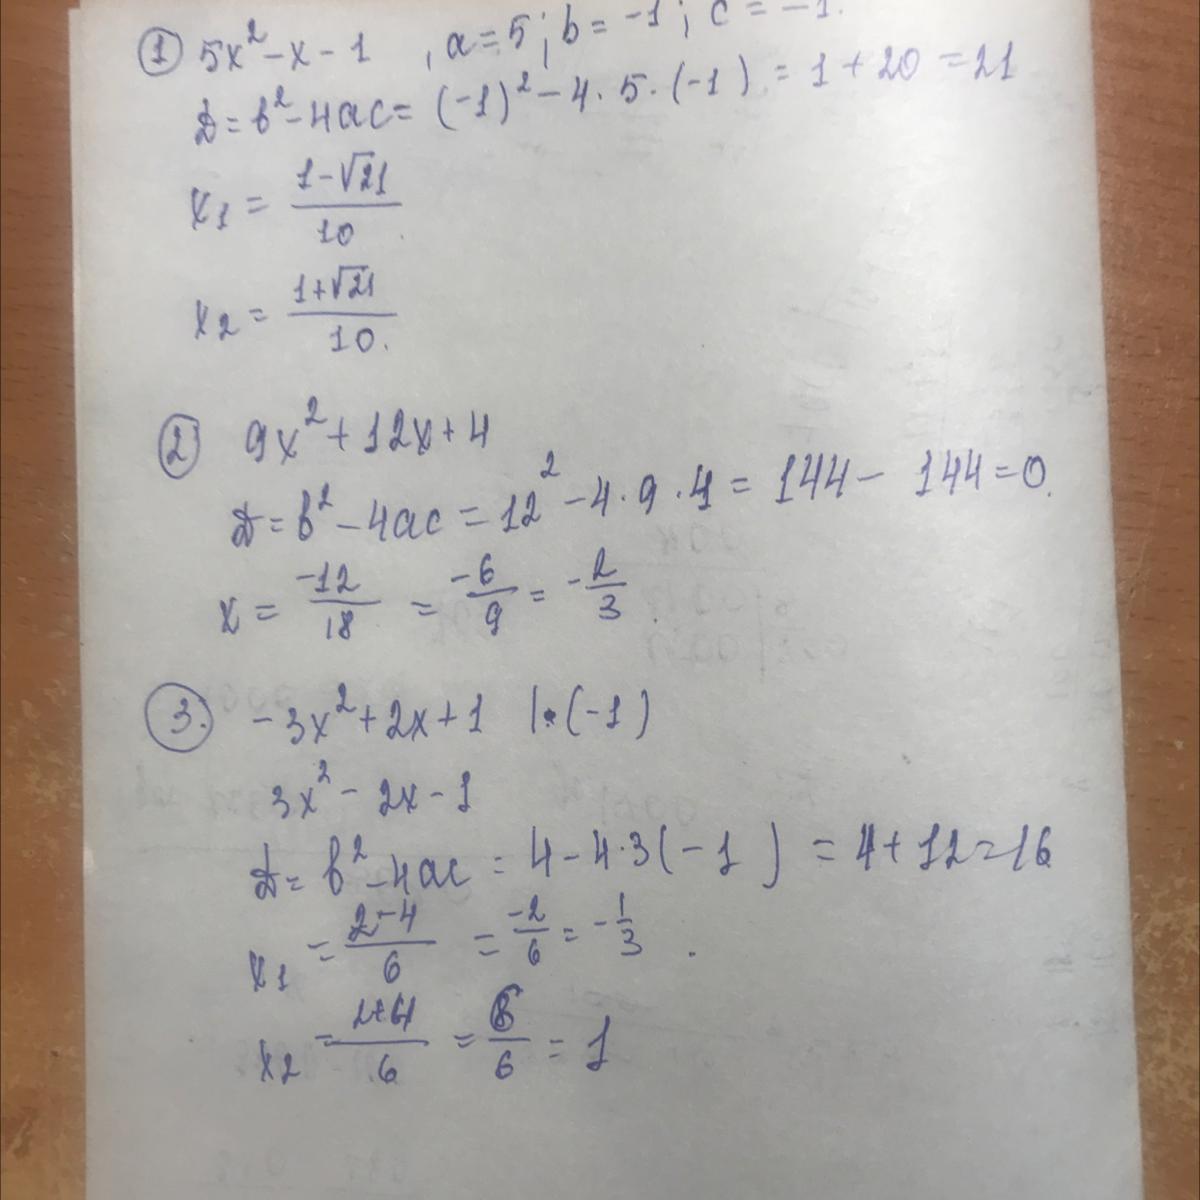 ① 5x² - x - 1 , a = 5; b = -1; c = -1.
D = b² - 4ac = (-1)² - 4 · 5 · (-1) = 1 + 20 = 21
x₁ = (1 - √21)/10
x₂ = (1 + √21)/10.
② 9x² + 12x + 4
D = b² - 4ac = 12² - 4 · 9 · 4 = 144 - 144 = 0.
x = -12/18 = -6/9 = -2/3
③. -3x² + 2x + 1 |· (-1)
3x² - 2x - 1
D = b² - 4ac = 4 - 4 · 3(-1) = 4 + 12 = 16
x₁ = (2 - 4)/6 = -2/6 = -1/3.
x₂ = (2 + 4)/6 = 6/6 = 1